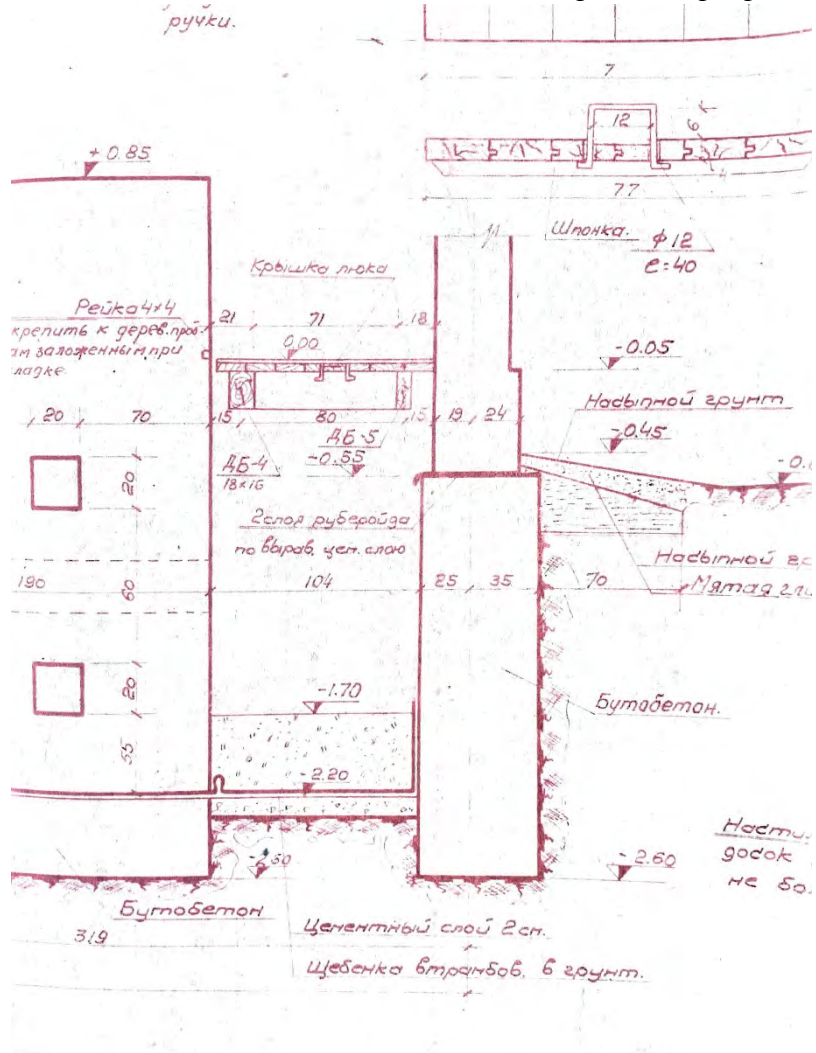 ручки.
7
12
6
4
77
+0.85
Шпонка.
ф12
е=40
Крышка люка
Рейка 4×4
крепить к дерев.
ам заложенным при
21
71
18
0,00
-0.05
Насыпной грунт
20
70
15
80
15
19
24
-0.45
ДБ-5
ДБ-4
18×16
-0.55
20
2 слоя руберойда
по вырав. цем. слою
Насыпной
Мятая
190
60
104
25
35
70
20
-1.70
Бутобетон.
55
-2.20
-2.60
Бутобетон
Цементный слой 2см.
319
Щебенка втрамбов. в грунт.
досок
не